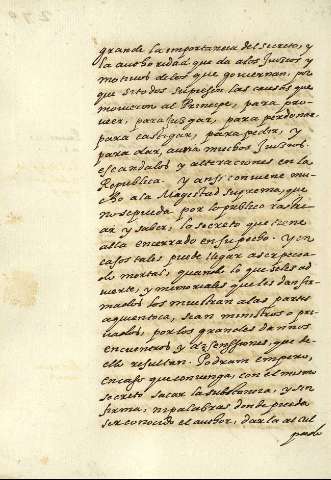 grande la importancia del secreto, y
la authoridad que da a los Juizios y
motivos de los que goviernan, por
que si todos supiesen las causas que
movieron al Principe, para pro
veer, para juzgar, para perdonar
para castigar, para pedir, y
para dar, auria muchos Juizios
escandalos y alteraciones en la
Republica. Y ansi conviene mu
cho a la Magestad suprema, que
no se pueda por lo publico rastre
ar y saber, lo secreto que tiene
alla encerrado en su pecho. Y en
casos tales puede llegar a ser peca
do mortal, quando lo que se les ad
vierte, y memoriales que les dan fir
mados los muestran a las partes
a quien toca, sean ministros o pri
vados, por los grandes daños
encuentros y disensiones, que de
ello resultan. Podran empero,
en caso que convenga, con el mismo
secreto sacar la substancia, y sin
firma, ni palabras donde pueda
ser conocido el author, darla al cul
pado